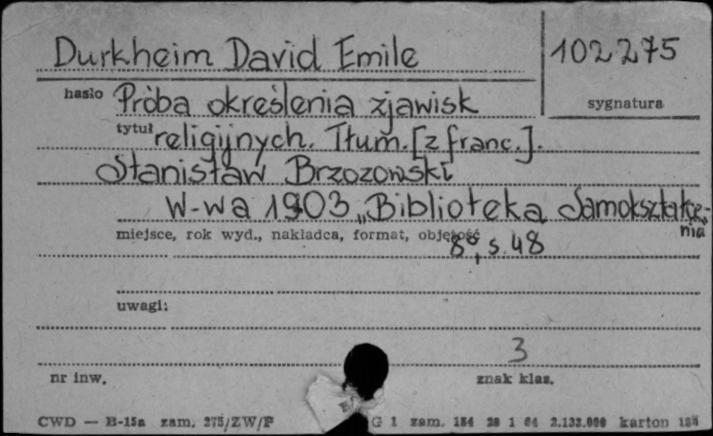 Durkheim David Emile 102275
hasło Próba określenia zjawisk sygnatura
tytuł religijnych. Tłum. [z franc.].
Stanisław Brzozowski
W-wa 1903 „Biblioteka Samokształce-
nia
miejsce, rok wyd., nakładca, format, objętość
8°, s. 48
uwagi:
3
nr inw. znak klas.
CWD — B-15a zam. 275/ZW/P G 1 zam. 154 28 1 64 2.132.000 karton